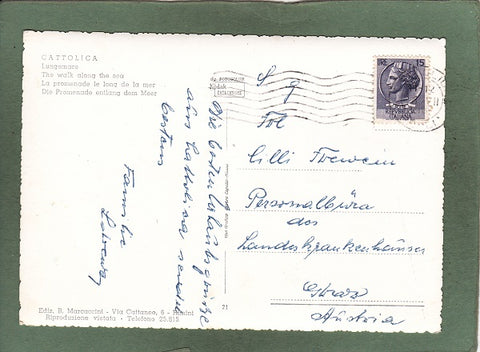 CATTOLICA
Lungomare
The walk along the sea
La promenade le long de la mer
Die Promenade entlang dem Meer
Die besten Urlaubsgrüße
aus Cattolica sendet
bestens
Familie
LIRE 15
S. g.
Frl.
Cilli
Personalbüro
des
Landeskrankenhauses
Graz
Austria
Ediz. B. Marcaccini - Via Cattaneo, 6 - Rimini
Riproduzione vietata - Telefono 25.812
71